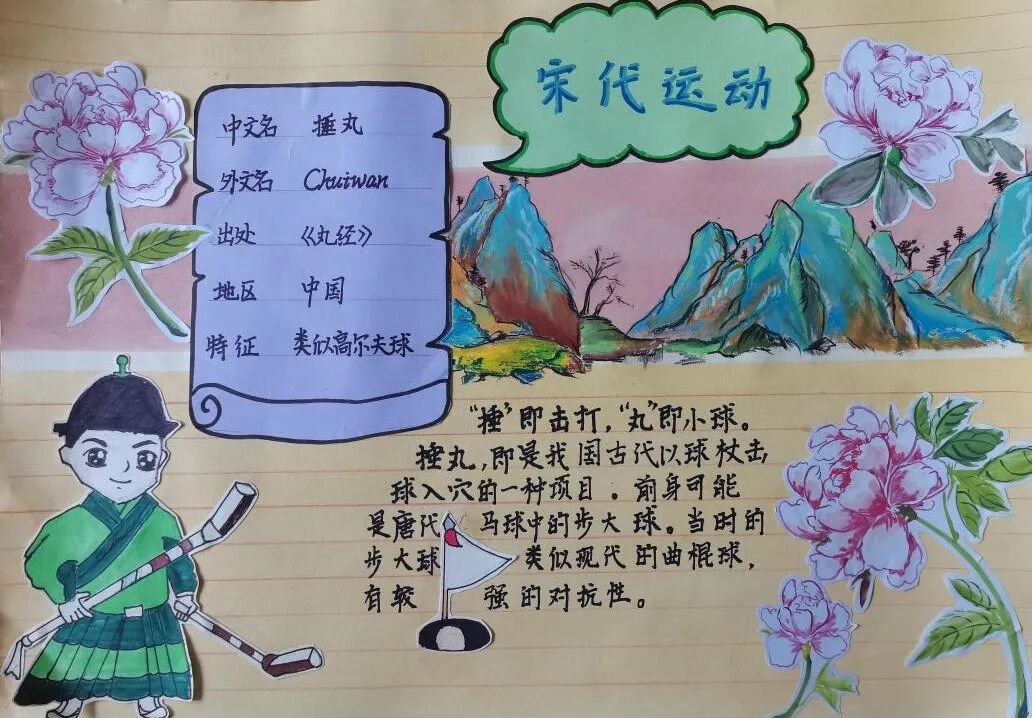 宋代运动
中文名 捶丸
外文名 Chuiwan
出处 《丸经》
地区 中国
特征 类似高尔夫球
“捶”即击打，“丸”即小球。
捶丸，即是我国古代以球杖击
球入穴的一种项目。前身可能
是唐代马球中的步大球。当时的
步大球类似现代的曲棍球，
有较强的对抗性。